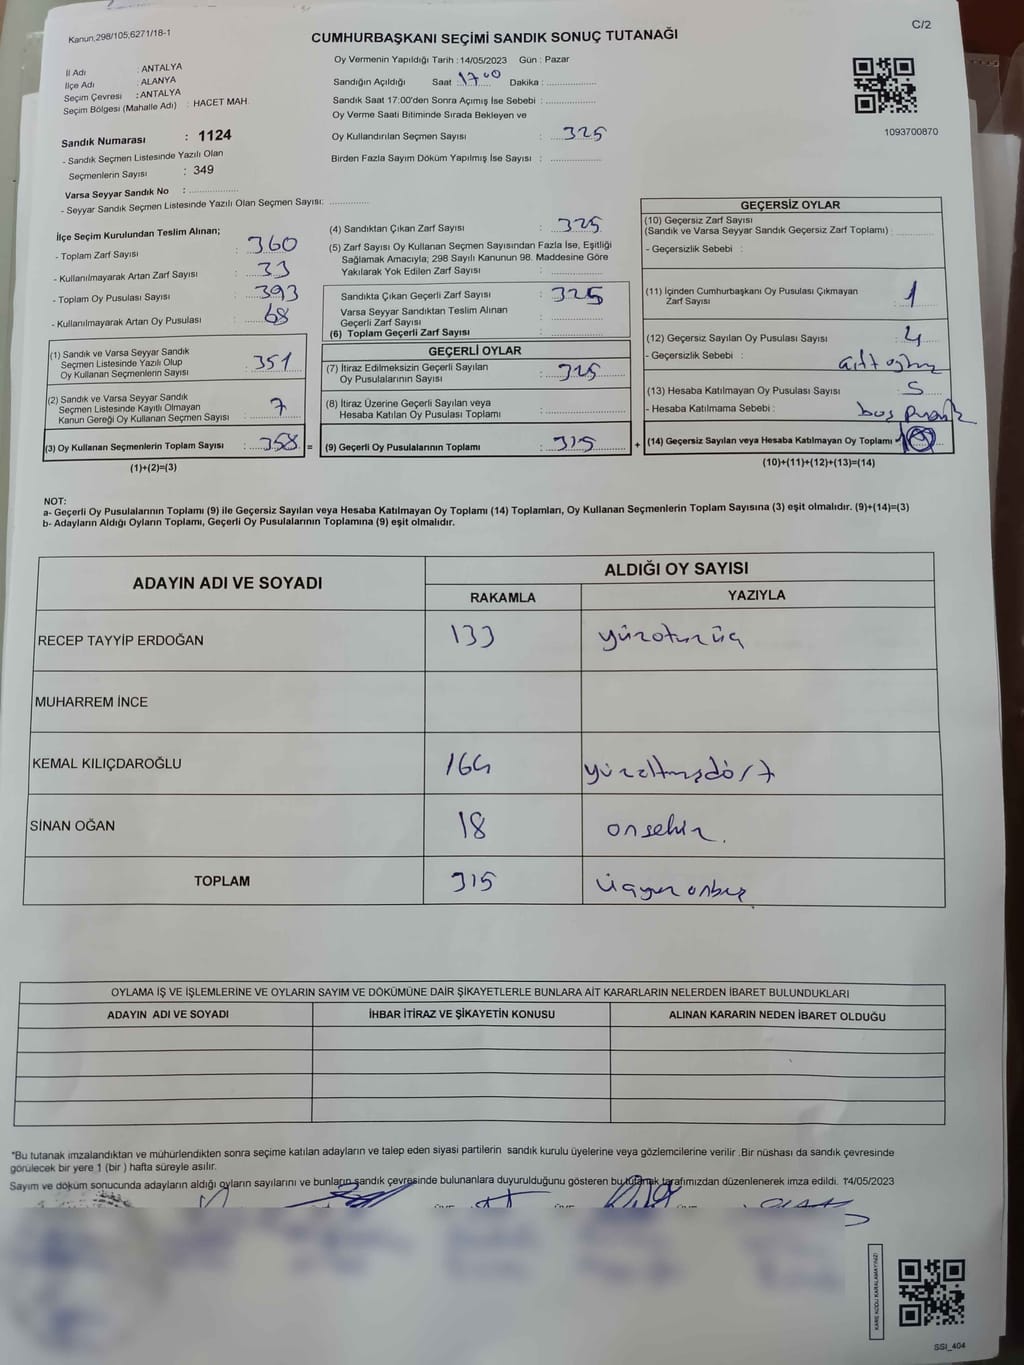 Kanun,298/105,6271/18-1
C/2
CUMHURBAŞKANI SEÇİMİ SANDIK SONUÇ TUTANAĞI
İl Adı : ANTALYA
İlçe Adı : ALANYA
Seçim Çevresi : ANTALYA
Seçim Bölgesi (Mahalle Adı) : HACET MAH.
Sandık Numarası : 1124
- Sandık Seçmen Listesinde Yazılı Olan
Seçmenlerin Sayısı : 349
Varsa Seyyar Sandık No : ..................
- Seyyar Sandık Seçmen Listesinde Yazılı Olan Seçmen Sayısı: ..............
Oy Vermenin Yapıldığı Tarih : 14/05/2023 Gün : Pazar
Sandığın Açıldığı Saat : 17 00 Dakika : ..................
Sandık Saat 17:00'den Sonra Açımış İse Sebebi : ..................
Oy Verme Saati Bitiminde Sırada Bekleyen ve
Oy Kullandırılan Seçmen Sayısı : 325
Birden Fazla Sayım Döküm Yapılmış İse Sayısı : ..................
1093700870
İlçe Seçim Kurulundan Teslim Alınan;
- Toplam Zarf Sayısı : 360
- Kullanılmayarak Artan Zarf Sayısı : 33
- Toplam Oy Pusulası Sayısı : 393
- Kullanılmayarak Artan Oy Pusulası : 68
(1) Sandık ve Varsa Seyyar Sandık
Seçmen Listesinde Yazılı Olup
Oy Kullanan Seçmenlerin Sayısı : 351
(2) Sandık ve Varsa Seyyar Sandık
Seçmen Listesinde Kayıtlı Olmayan
Kanun Gereği Oy Kullanan Seçmen Sayısı : 7
(3) Oy Kullanan Seçmenlerin Toplam Sayısı : 358 =
(1)+(2)=(3)
(4) Sandıktan Çıkan Zarf Sayısı : 325
(5) Zarf Sayısı Oy Kullanan Seçmen Sayısından Fazla İse, Eşitliği
Sağlamak Amacıyla; 298 Sayılı Kanunun 98. Maddesine Göre
Yakılarak Yok Edilen Zarf Sayısı : ..................
Sandıkta Çıkan Geçerli Zarf Sayısı : 325
Varsa Seyyar Sandıktan Teslim Alınan
Geçerli Zarf Sayısı : ..................
(6) Toplam Geçerli Zarf Sayısı : ..................
GEÇERLİ OYLAR
(7) İtiraz Edilmeksizin Geçerli Sayılan
Oy Pusulalarının Sayısı : 325
(8) İtiraz Üzerine Geçerli Sayılan veya
Hesaba Katılan Oy Pusulası Toplamı : ..................
(9) Geçerli Oy Pusulalarının Toplamı : 315 +
GEÇERSİZ OYLAR
(10) Geçersiz Zarf Sayısı
(Sandık ve Varsa Seyyar Sandık Geçersiz Zarf Toplamı) : ..........
- Geçersizlik Sebebi :
(11) İçinden Cumhurbaşkanı Oy Pusulası Çıkmayan
Zarf Sayısı : 1
(12) Geçersiz Sayılan Oy Pusulası Sayısı : 4
- Geçersizlik Sebebi :
(13) Hesaba Katılmayan Oy Pusulası Sayısı : 5
- Hesaba Katılmama Sebebi : boş
(14) Geçersiz Sayılan veya Hesaba Katılmayan Oy Toplamı
(10)+(11)+(12)+(13)=(14)
NOT:
a- Geçerli Oy Pusulalarının Toplamı (9) ile Geçersiz Sayılan veya Hesaba Katılmayan Oy Toplamı (14) Toplamları, Oy Kullanan Seçmenlerin Toplam Sayısına (3) eşit olmalıdır. (9)+(14)=(3)
b- Adayların Aldığı Oyların Toplamı, Geçerli Oy Pusulalarının Toplamına (9) eşit olmalıdır.
ADAYIN ADI VE SOYADI
ALDIĞI OY SAYISI
RAKAMLA YAZIYLA
RECEP TAYYİP ERDOĞAN 133 yüzotuzüç
MUHARREM İNCE
KEMAL KILIÇDAROĞLU 164 yüzaltmışdört
SİNAN OĞAN 18 onsekiz.
TOPLAM 315 üçyüz onbeş
OYLAMA İŞ VE İŞLEMLERİNE VE OYLARIN SAYIM VE DÖKÜMÜNE DAİR ŞİKAYETLERLE BUNLARA AİT KARARLARIN NELERDEN İBARET BULUNDUKLARI
ADAYIN ADI VE SOYADI İHBAR İTİRAZ VE ŞİKAYETİN KONUSU ALINAN KARARIN NEDEN İBARET OLDUĞU
*Bu tutanak imzalandıktan ve mühürlendikten sonra seçime katılan adayların ve talep eden siyasi partilerin sandık kurulu üyelerine veya gözlemcilerine verilir .Bir nüshası da sandık çevresinde
görülecek bir yere 1 (bir ) hafta süreyle asılır.
Sayım ve döküm sonucunda adayların aldığı oyların sayılarını ve bunların sandık çevresinde bulunanlara duyurulduğunu gösteren bu tutanak tarafımızdan düzenlenerek imza edildi. 14/05/2023
KARE KODU KARALAMAYINIZ!
SSI_404